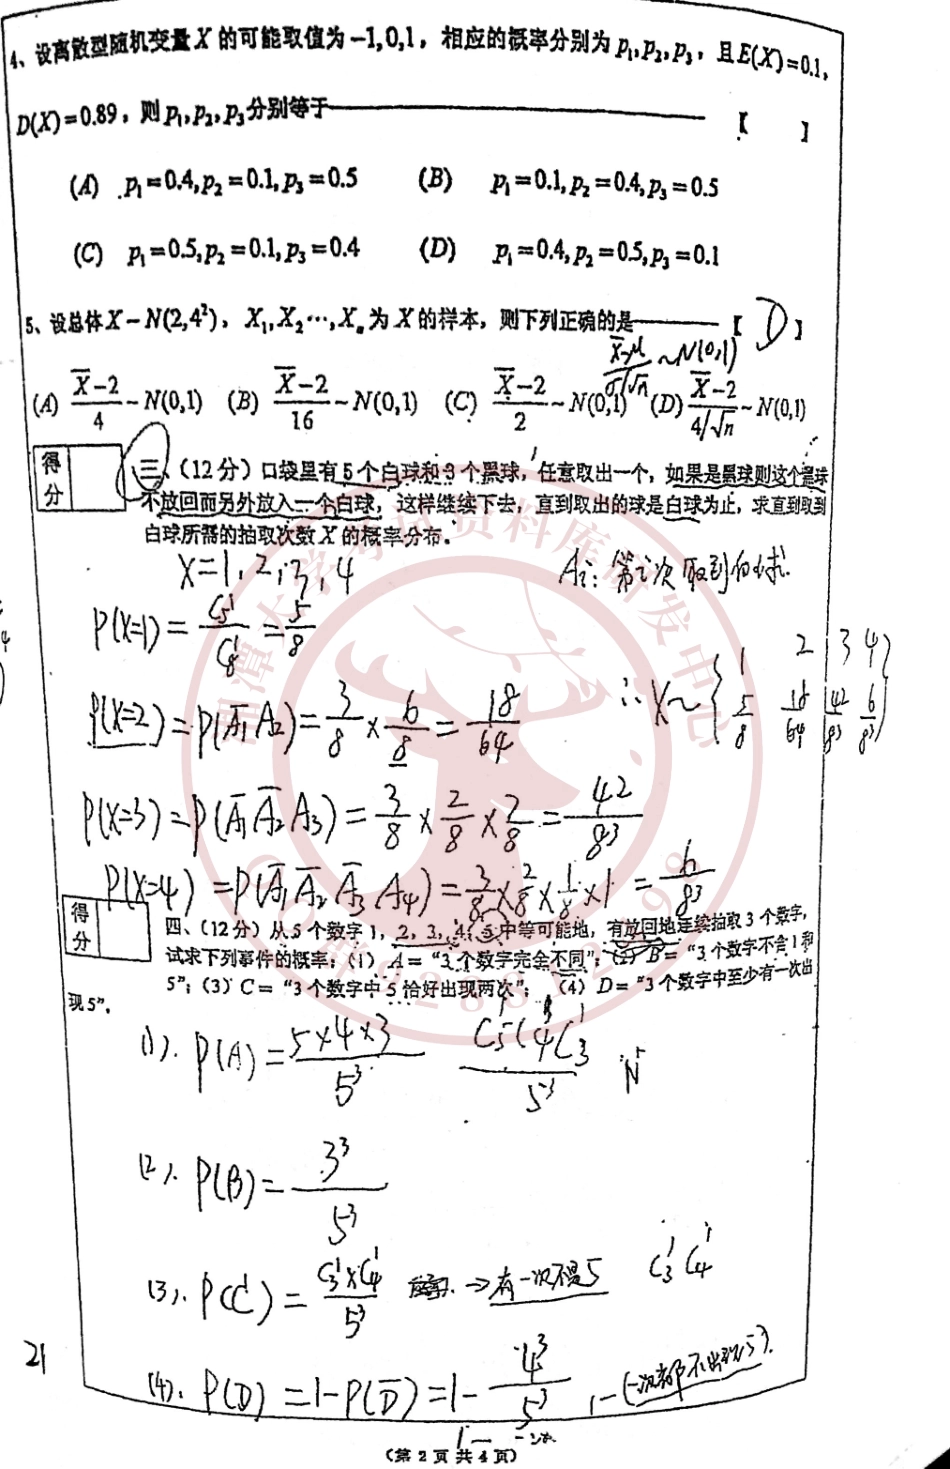 4、设离散型随机变量X的可能取值为-1,0,1，相应的概率分别为p₁,p₂,p₃，且E(X)=0.1,
D(X)=0.89，则p₁,p₂,p₃分别等于【 】
(A) p₁=0.4,p₂=0.1,p₃=0.5 (B) p₁=0.1,p₂=0.4,p₃=0.5
(C) p₁=0.5,p₂=0.1,p₃=0.4 (D) p₁=0.4,p₂=0.5,p₃=0.1
5、设总体X~N(2,4²)，X₁,X₂…,Xₙ为X的样本，则下列正确的是【 D 】
(X̄-μ)/(σ/√n) ~N(0,1)
(A) (X̄-2)/4 ~N(0,1) (B) (X̄-2)/16 ~N(0,1) (C) (X̄-2)/2 ~N(0,1) (D) (X̄-2)/(4/√n) ~N(0,1)
得分
三、(12分) 口袋里有5个白球和3个黑球，任意取出一个，如果是黑球则这个黑球
不放回而另外放入一个白球，这样继续下去，直到取出的球是白球为止，求直到取到
白球所需的抽取次数X的概率分布。
X=1,2,3,4 Aᵢ: 第i次取到白球.
P(X=1)=C₅¹/C₈¹=5/8
P(X=2)=P(Ā₁A₂)=3/8×6/8=18/64
∴X~{1 2 3 4
5/8 18/64 42/8³ 6/8³}
P(X=3)=P(Ā₁Ā₂A₃)=3/8×2/8×7/8=42/8³
P(X=4)=P(Ā₁Ā₂Ā₃A₄)=3/8×2/8×1/8×1=6/8³
得分
四、(12分) 从5个数字1，2，3，4，5中等可能地，有放回地连续抽取3个数字，
试求下列事件的概率：(1) A=“3个数字完全不同”；(2) B=“3个数字不含1和
5”；(3) C=“3个数字中5恰好出现两次”；(4) D=“3个数字中至少有一次出
现5”。
(1). P(A)=5×4×3/5³ C₅¹C₄¹C₃¹/5³
(2). P(B)=3³/5³
(3). P(C)=C₃¹×C₄¹/5³ →有一次不是5 C₃¹C₄¹
21
(4). P(D)=1-P(D̄)=1-4³/5³ 1-(一次都不出现5).
(第 2 页 共 4 页)
湘潭大学考试资料库研发中心